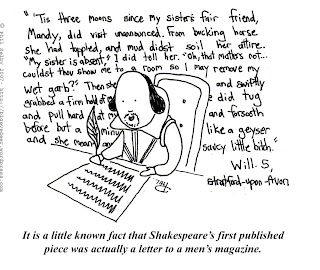 "'Tis three moons since my sister's fair friend,
Mandy, did visit unannounced. From bucking horse
she had toppled, and mud didst soil her attire.
"My sister is absent," I did tell her. "Oh, that matters not...
couldst thou show me to a room so I may remove my
wet garb?" Then she and swiftly
grabbed a firm hold of m e did tug
and pull hard at m and forsooth
before but a minu like a geyser
and she moan saucy little bitch."
Will. S,
Stratford-upon-Avon
It is a little known fact that Shakespeare's first published
piece was actually a letter to a men's magazine.